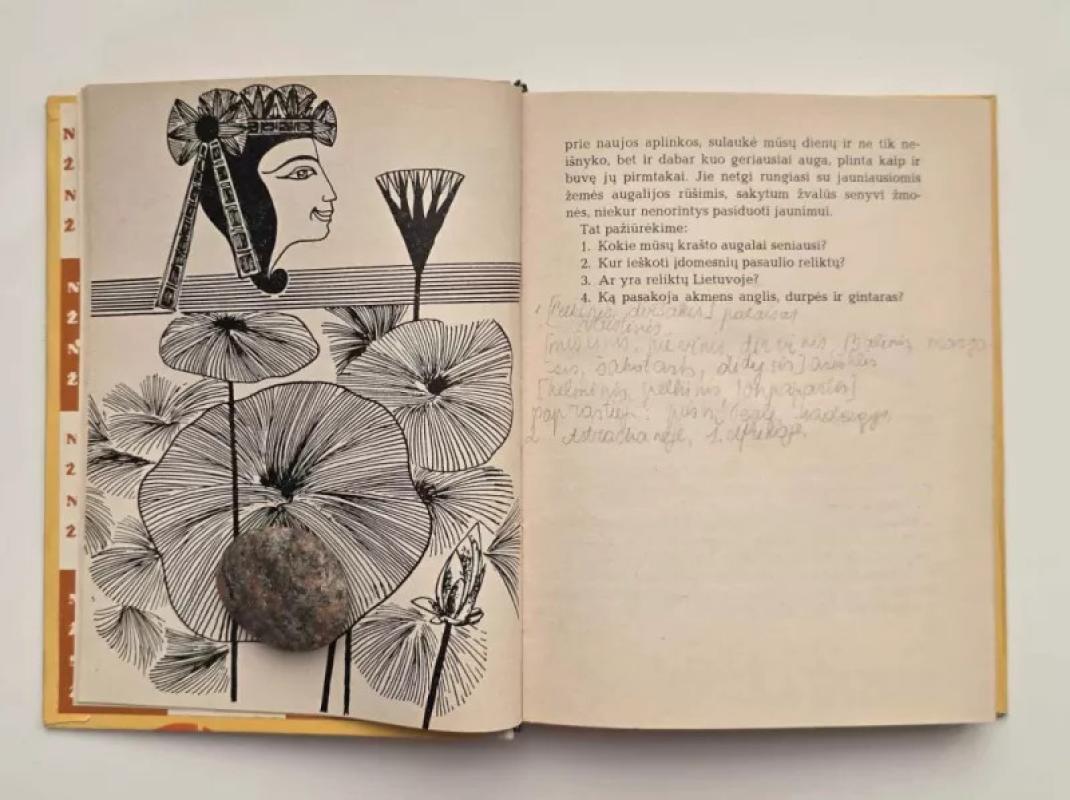 N
Ž
N
Ž
N
Ž
N
Ž
N
Ž
N
Ž
prie naujos aplinkos, sulaukė mūsų dienų ir ne tik ne-
išnyko, bet ir dabar kuo geriausiai auga, plinta kaip ir
buvę jų pirmtakai. Jie netgi rungiasi su jauniausiomis
žemės augalijos rūšimis, sakytum žvalūs senyvi žmo-
nės, niekur nenorintys pasiduoti jaunimui.
Tat pažiūrėkime:
1. Kokie mūsų krašto augalai seniausi?
2. Kur ieškoti įdomesnių pasaulio reliktų?
3. Ar yra reliktų Lietuvoje?
4. Ką pasakoja akmens anglis, durpės ir gintaras?
pataisas
pievinis, dirvinis, balinis, marga-
sis, šakotasis, didysis]
[kelminis, pelkinis,
2. Astrachanėje,